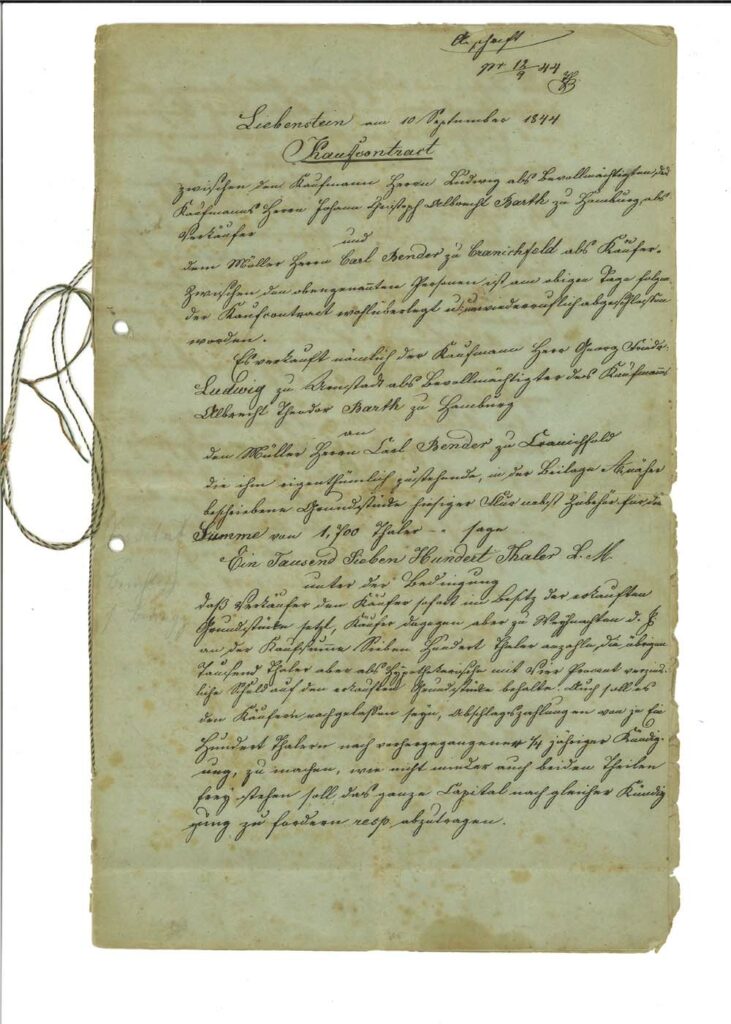 Abschrift
pr 12/9 44
Liebenstein am 10 September 1844
Kaufcontract
zwischen den Kaufmann Herrn Ludwig als Bevollmächtigten des
Kaufmanns Herrn Johann Christoph Albrecht Barth zu Hamburg als
Verkäufer
und
dem Müller Herrn Carl Bender zu Cranichfeld als Käufer.
Zwischen den obengenannten Personen ist am obigen Tage folgen
der Kaufcontract wohlüberlegt u. unwiederruflich abgeschlossen
worden.
Es verkauft nämlich der Kaufmann Herr Georg Friedr.
Ludwig zu Arnstadt als Bevollmächtigter des Kaufmanns
Albrecht Theodor Barth zu Hamburg
an
den Müller Herrn Carl Bender zu Cranichfeld
die ihm eigenthümlich zustehende, in der Beilage A näher
beschriebene Grundstücke hiesiger Flur nebst Zubehör für die
Summe von 1,700 Thaler - sage
Ein Tausend Sieben Hundert Thaler L. M.
unter der Bedingung
daß Verkäufer den Käufer sofort in Besitz der erkauften
Grundstücke setzt, Käufer dagegen aber zu Weynachten d. J.
an der Kaufsumme Sieben Hundert Thaler anzahle, die übrigen
Tausend Thaler aber als Hypothekarische mit Vier Procent verzins-
liche Schuld auf den erkauften Grundstücke behalte. Auch soll es
den Käufern nachgelassen seyn, Abschlagszahlungen von je Ein
Hundert Thalern nach vorhergegangener 1/4 jähriger Kündig-
ung, zu machen, wie nicht minder auch beiden Theilen
frey stehen soll, das ganze Capital nach gleicher Kündig
gung zu fordern resp. abzutragen.